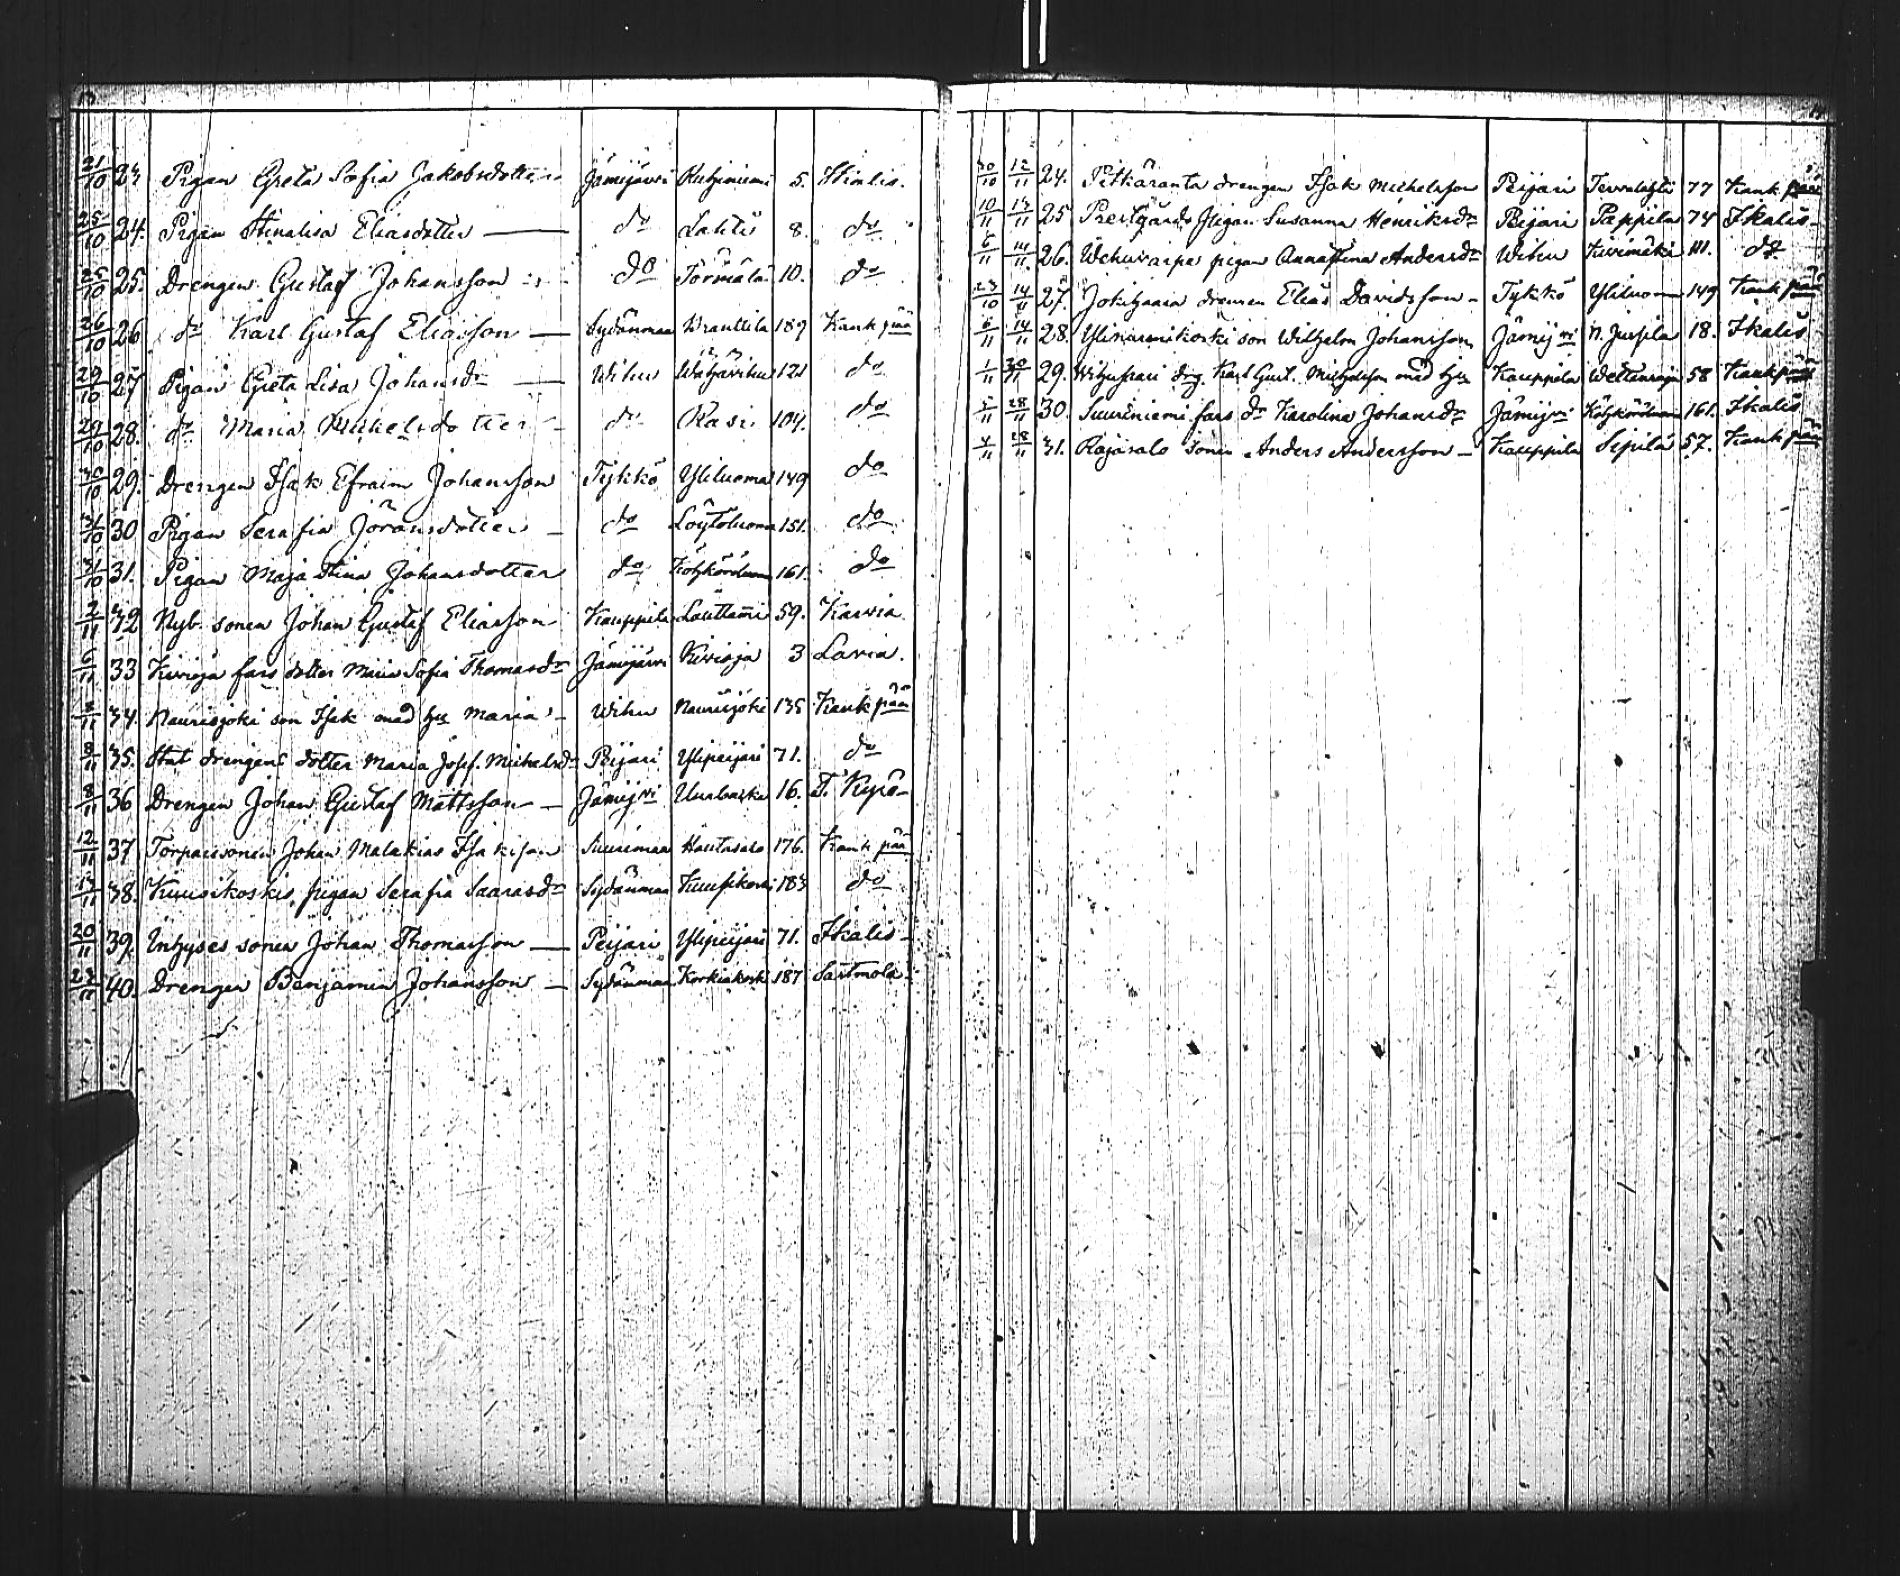 21/10 23 Pigan Greta Sofia Jakobsdotter Jämijärvi 5. Ikalis.
25/10 24. Pigan Stinalisa Eliasdotter — do Lahtis 8. do
25/10 25. Drengen Gustaf Johansson do Törmälä 10. do
26/10 26 do Karl Gustaf Eliasson — Sydänmaa Kranttila 189 Kankpää
29/10 27 Pigan Greta Lisa Johansdr — Wihu Wähäwihu 121 do
29/10 28. do Maria Michelsdotter do Rasi 104. do
30/10 29. Drengen Isak Efraim Johansson Tykkö Yliluoma 149 do
31/10 30 Pigan Serafia Göransdotter — do Löytoluoma 151. do
31/10 31. Pigan Maja Stina Johansdotter do Kötkörduoma 161. do
2/11 32 Nyb. sonen Johan Gustaf Eliasson Kauppila Lauttami 59. Karvia
5/11 33 Kivioja fars dotter Maria Sofia Thomasdr Jämijärvi Kivioja 3 Lavia.
11 34. Naurisjoki son Isak med hu Maria — Wihu Naurisjoki 135 Kankpää
8/11 35. Stat drengens dotter Maria Josef. Michelsdr Peijari Ylipeijari 71. do
8/11 36 Drengen Johan Gustaf Mattsson — Jämijvi 16. T. Kyrö
12/11 37 Torparsonen Johan Malakias Isaksson Suurimaa Hautasalo 176. Kankpää
13/11 38. Kuusikoskis pigan Serafia Saarasdr Sydänmaa Kuusikoski 183 do
20/11 39. Inhyses sonen Johan Thomasson — Peijari Ylipeijari 71. Ikalis
23/11 40. Drengen Benjamin Johansson — Sydänmaa Korkiakoski 187 Sastmola
30/10 12/11 24. Pitkäranta drengen Isak Michelsson Peijari Tervalahti 77 Kankpää
10/11 13/11 25 Prestgårds Pigan Susanna Henriksdr Peijari Pappila 74 Ikalis
6/11 14/11 26. Wehuvarpe pigan Anna Stina Andersdr Wihu Kivimäki 111. do
23/10 14/11 27. Jokihaara drengen Elias Davidsson — Tykkö Yliluoma 149 Kankpää
6/11 14/11 28. Ylinarvikoski son Wilhelm Johansson Jämijvi N. Juspila 18. Ikalis
1/11 20/11 29. drg. Karl Gust. Michelsson med hu Kauppila 58 Kankpää
5/11 28/11 30. Suuriniemi fars dr Karolina Johansdr Jämijvi Kötkörduoma 161. Ikalis
4/11 28/11 31. Rajasalo sonen Anders Andersson — Kauppila Sipilä 57. Kankpää